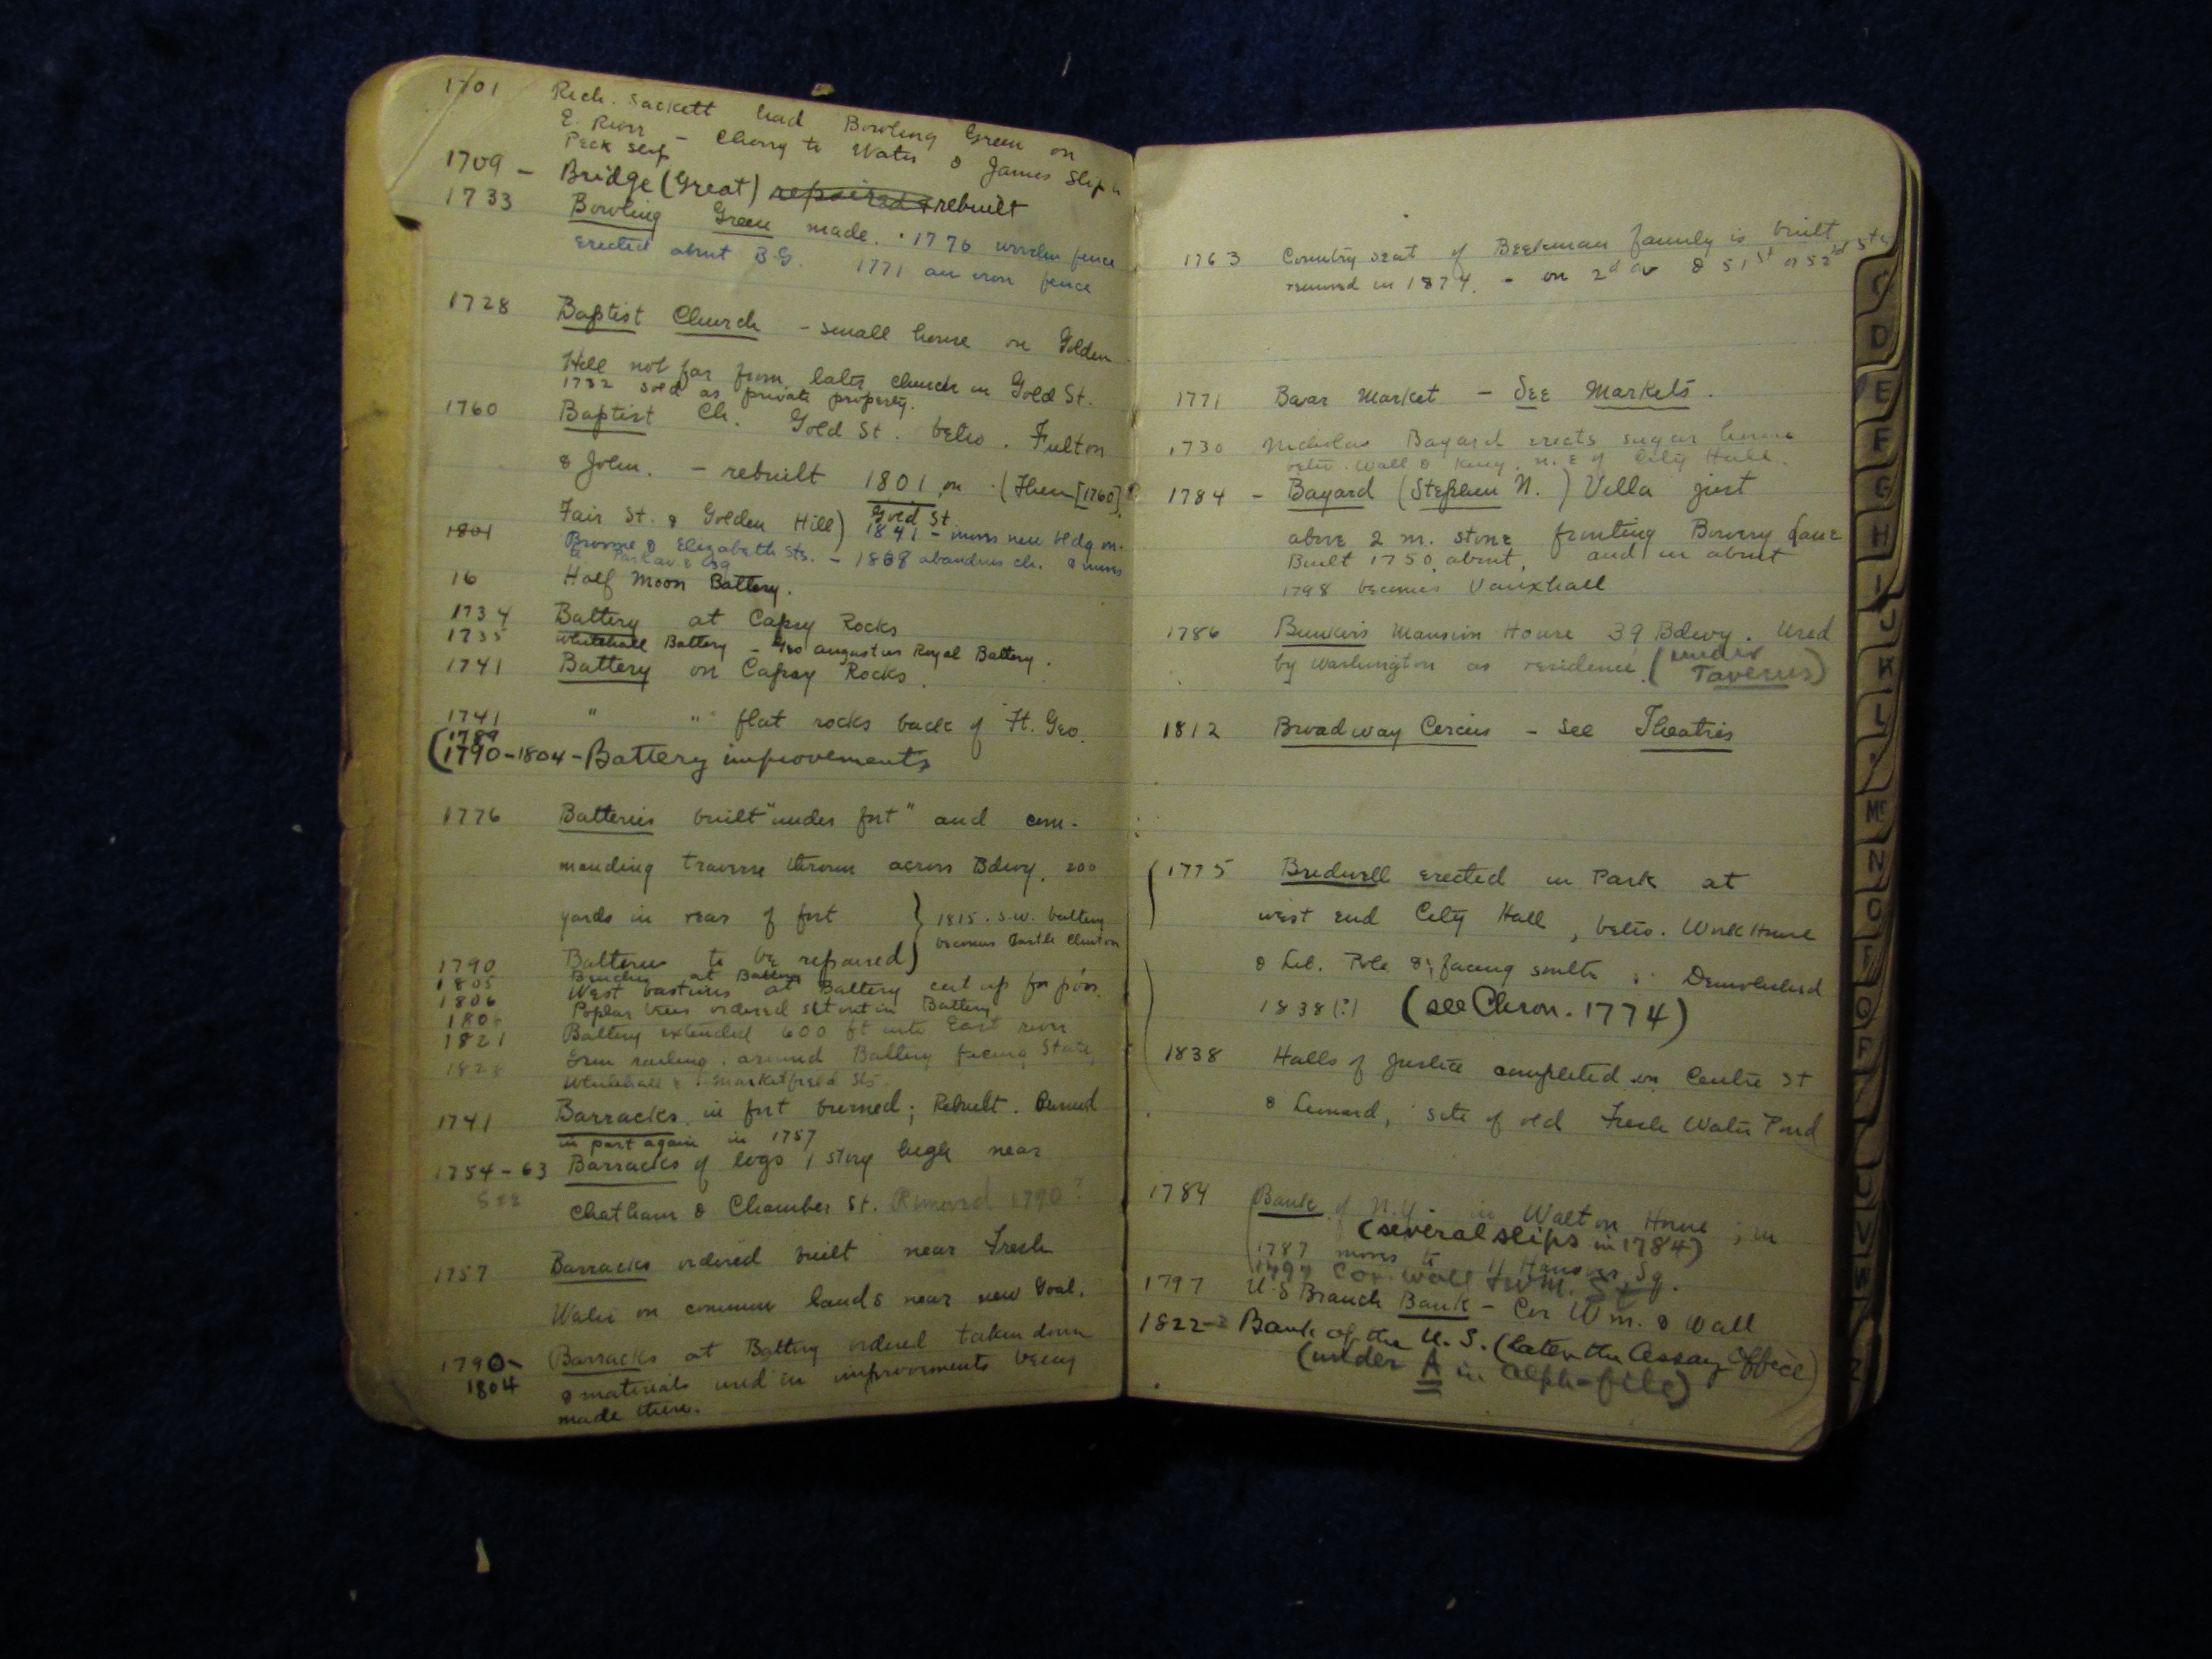 1701 Rich. Sackett had Bowling Green on
E. River - Cherry to Water & James Slip to
Peck Slip
1709 - Bridge (Great) repaired & rebuilt
1733 Bowling Green made. 1776 wooden fence
erected about B.G. 1771 an iron fence
1728 Baptist Church - small house on Golden
Hill not far from later church in Gold St.
1732 sold as private property.
1760 Baptist Ch. Gold St. betw. Fulton
& John. - rebuilt 1801 on (Then [1760]
Gold St
Fair St. & Golden Hill) 1841 - moves new bldg on
1801 Broome & Elizabeth Sts. - 1868 abandons ch. & moves
to Park av. &
16 Half Moon Battery.
1734 Battery at Capsy Rocks
1735 Whitehall Battery - Geo Augustus Royal Battery.
1741 Battery on Capsey Rocks.
1741 " " flat rocks back of Ft. Geo.
1789
(1790-1804 - Battery improvements
1776 Batteries built "under fort" and com-
manding traverse thrown across Bdwy, 200
yards in rear of fort } 1815. S.W. battery
becomes Castle Clinton
1790 Batteries to be repaired
1805 Benches at Battery
1806 West bastions at Battery cut up for
180 Poplar trees ordered set out in Battery
1821 Battery extended 600 ft into East river
182 Iron railing around Battery facing State,
Whitehall & Marketfield Sts.
1741 Barracks in fort burned; Rebuilt. Burned
in part again in 1757
1754-63 Barracks of logs 1 story high near
See Chatham & Chamber St. Removed 1790?
1757 Barracks ordered built near Fresh
Water on common lands near new Goal.
1790- Barracks at Battery ordered taken down
1804 & materials used in improvements being
made there.
1763 Country seat of Beekman family is built
removed in 1874. - on 2d av & 51st or 52nd Sts
1771 Bear Market - See Markets.
1730 Nicholas Bayard erects sugar house
betw. Wall & King. n.e of City Hall.
1784 - Bayard (Stephen N.) Villa just
above 2 m. stone fronting Bowery Lane
Built 1750 about, and in about
1798 becomes Vauxhall
1786 Bunker's Mansion House 39 Bdwy. Used
by Washington as residence (under
Taverns)
1812 Broadway Circus - See Theatres
1775 Bridewell erected in Park at
west end City Hall, betw. Work House
& Lib. Pole &; facing south; Demolished
1838(?) (see Chron. 1774)
1838 Halls of Justice completed on Centre St
& Leonard, site of old Fresh Water Pond
1784 Bank of N.Y. in Walton House; in
(several slips in 1784)
1787 moves to 11 Hanover Sq.
1797 Cor. Wall & Wm. St.
1797 U.S Branch Bank - Cor Wm. & Wall
1822- Bank of the U.S. (later the Assay Office)
(under A in alph-file)
C
D
E
F
G
H
I
J
K
L
Mc
N
O
P
Q
U
V
W
Z